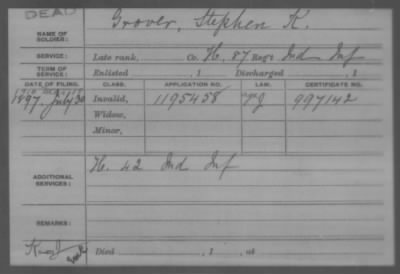 DEAD
NAME OF SOLDIER: Grover, Stephen K.
SERVICE: Late rank, Co. H, 87 Reg't Ind Inf
TERM OF SERVICE: Enlisted , 1 Discharged , 1
DATE OF FILING. CLASS. APPLICATION NO. LAW. CERTIFICATE NO.
1897. July 30 Invalid, 1195458 997142
Widow,
Minor,
ADDITIONAL SERVICES: H. 42 Ind Inf
REMARKS:
Died , 1 , at